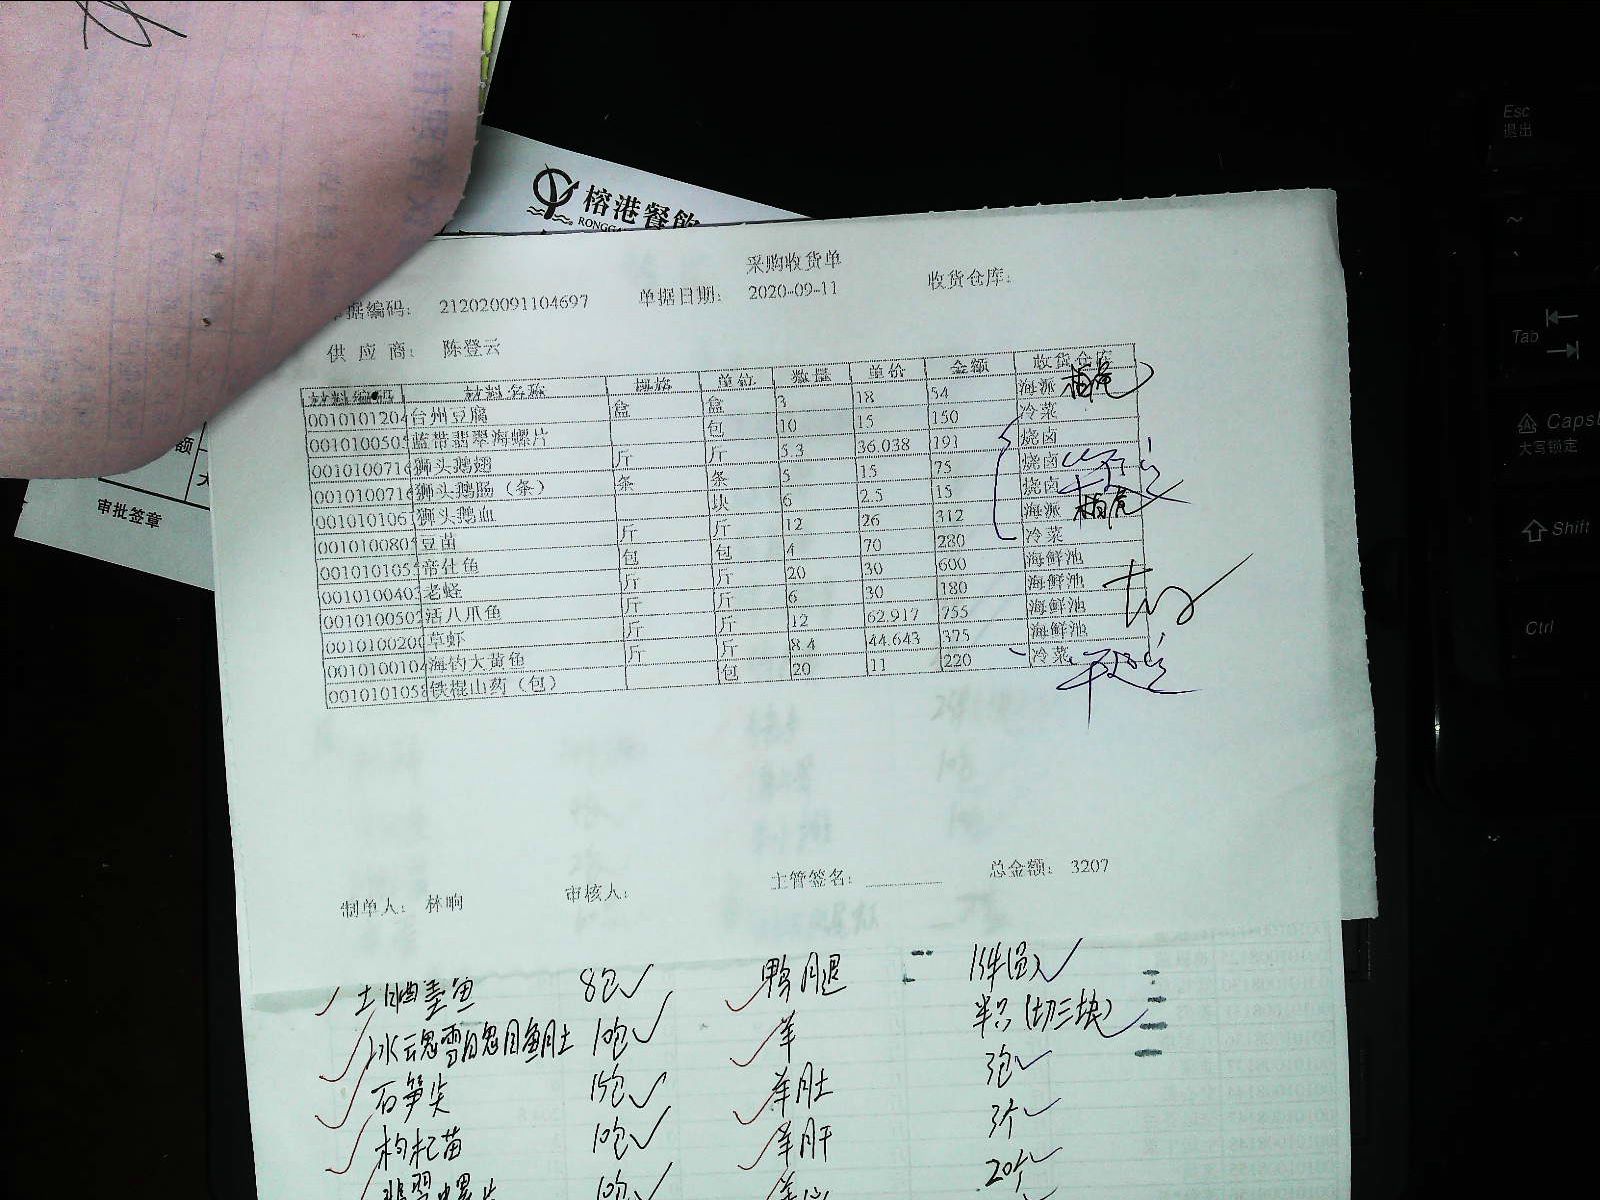 榕港餐飲
采购收货单
据编码： 212020091104697 单据日期： 2020-09-11 收货仓库：
供 应 商： 陈登云
材料编码 材料名称 规格 单位 数量 单价 金额 收货仓库
0010101204 台州豆腐 盒 盒 3 18 54 海派
0010100505 蓝带翡翠海螺片 包 10 15 150 冷菜
0010100716 狮头鹅翅 斤 斤 5.3 36.038 191 烧卤
0010100716 狮头鹅肠（条） 条 条 5 15 75 烧卤
0010101067 狮头鹅血 块 6 2.5 15 烧卤
0010100805 豆苗 斤 斤 12 26 312 海派
0010101055 帝仕鱼 包 包 4 70 280 冷菜
0010100403 老蛏 斤 斤 20 30 600 海鲜池
0010100502 活八爪鱼 斤 斤 6 30 180 海鲜池
0010100200 草虾 斤 斤 12 62.917 755 海鲜池
0010100104 海钓大黄鱼 斤 斤 8.4 44.643 375 海鲜池
0010101058 铁棍山药（包） 包 20 11 220 冷菜
制单人： 林晌 审核人： 主管签名： 总金额： 3207
墨鱼 8包 鸭腿 1件
10包 羊 半只(切三块)
石笋尖 15包 羊肚 3包
枸杞苗 10包 羊肝 3个
10包 20个
额
审批签章
Esc
退出
~
Tab
Caps
大写锁定
Shift
Ctrl